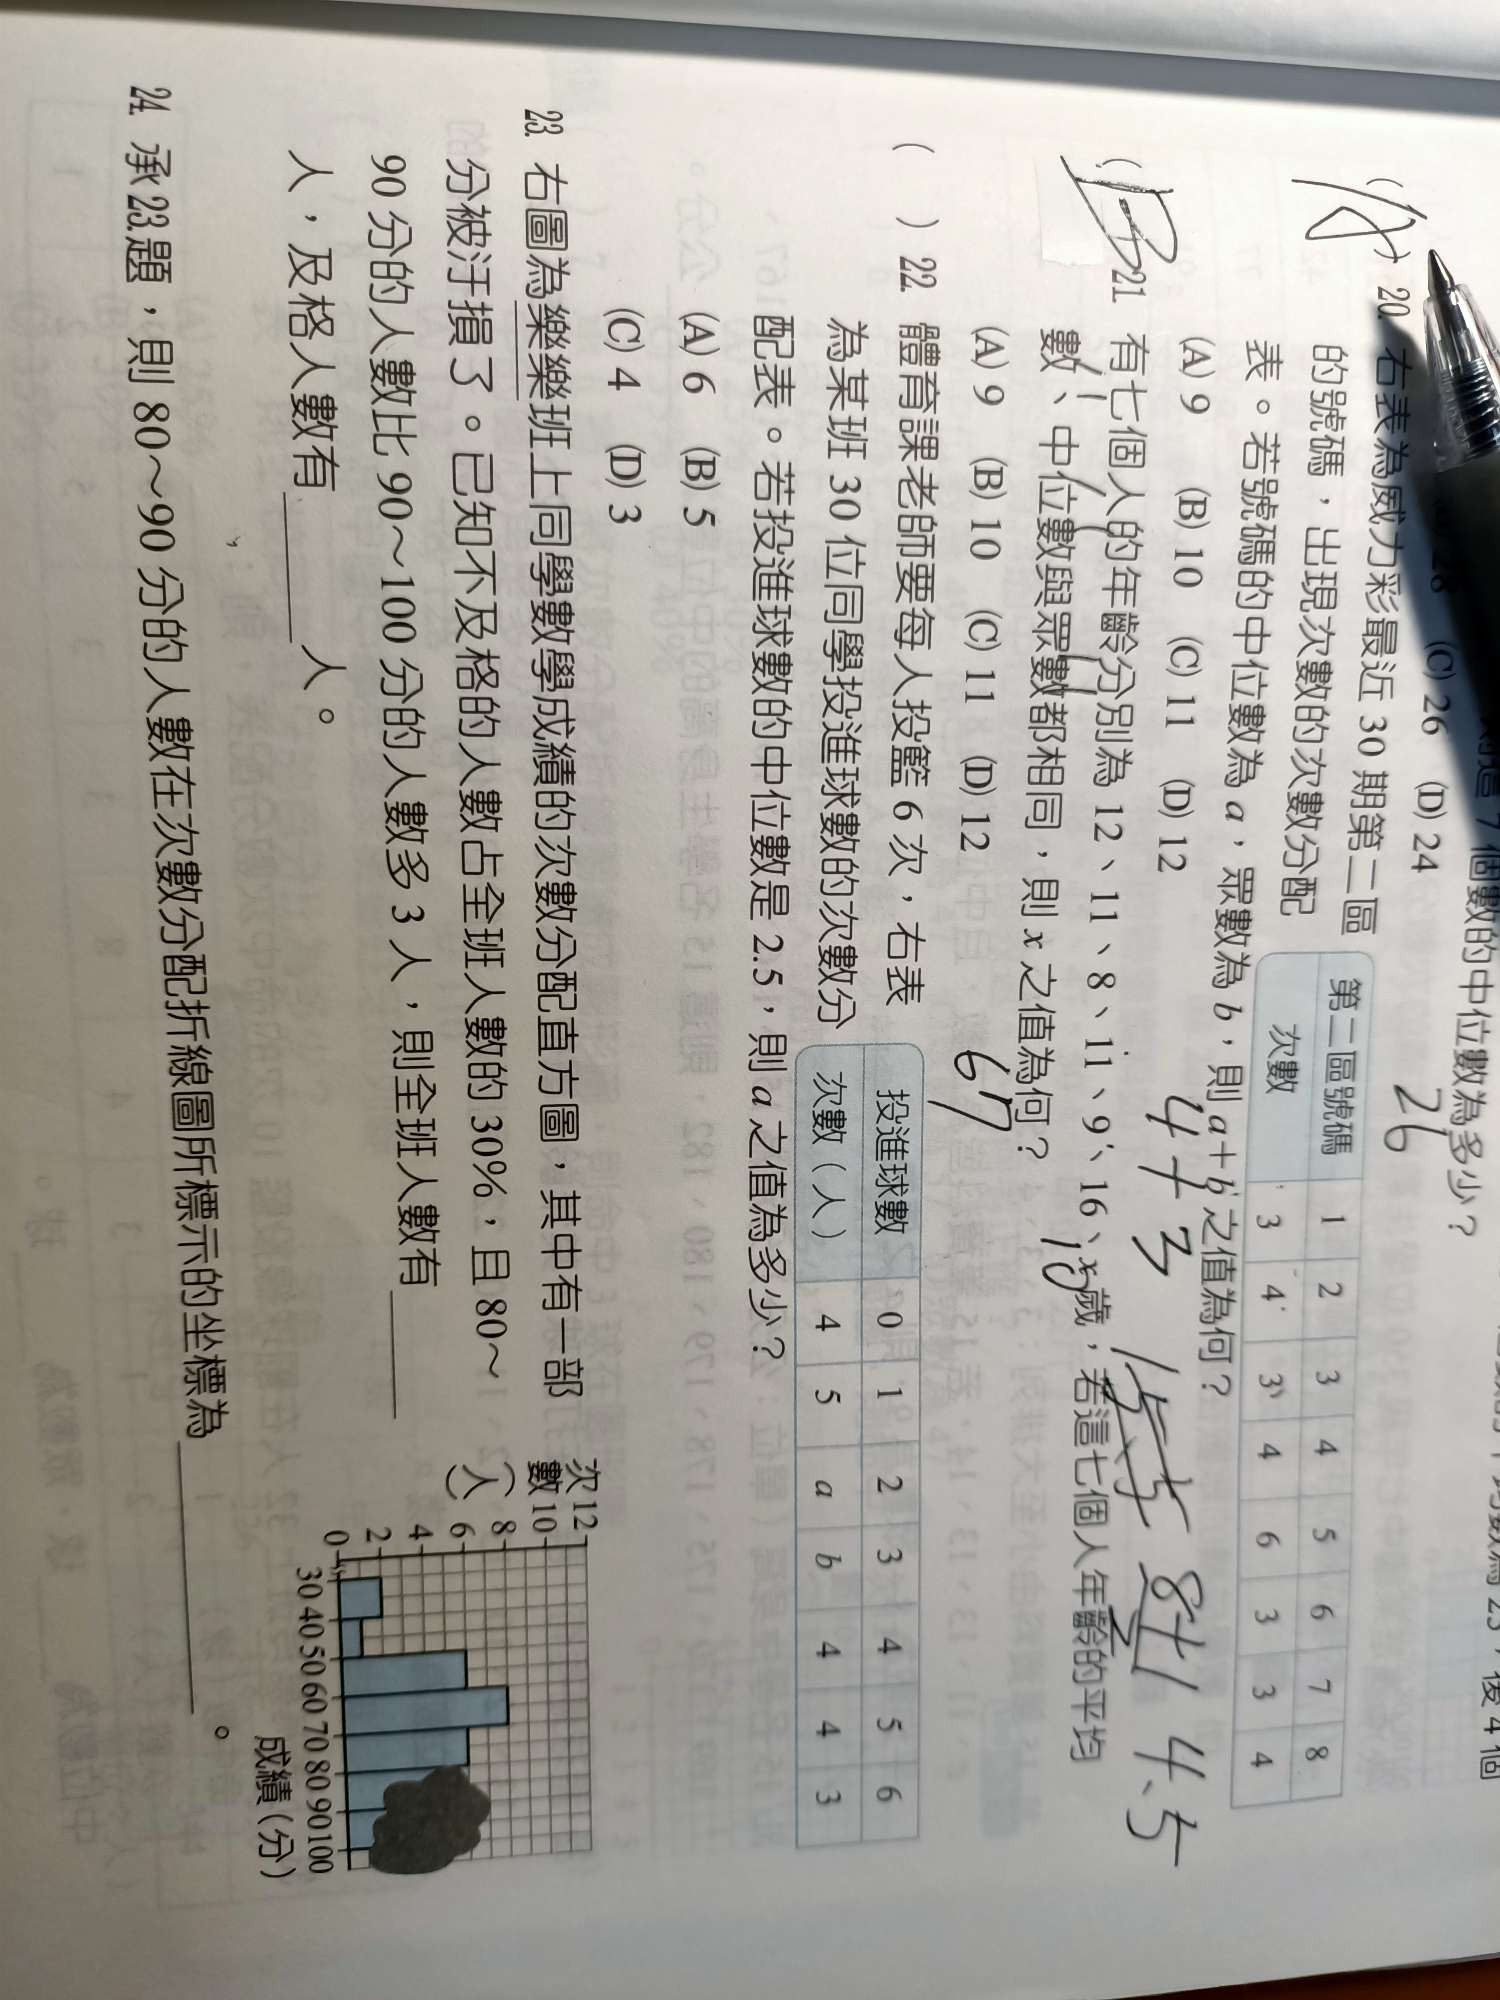 7 個數的中位數為多少？
(C) 26 (D) 24
26
20. 右表為威力彩最近 30 期第二區
的號碼，出現次數的次數分配
表。若號碼的中位數為 a，眾數為 b，則 a＋b 之值為何？
(A) 9 (B) 10 (C) 11 (D) 12
第二區號碼 1 2 3 4 5 6 7 8
次數 3 4 3 4 6 3 3 4
4 + 3
8+1 4.5
( B ) 21. 有七個人的年齡分別為 12、11、8、11、9、16、x 歲，若這七個人年齡的平均
數、中位數與眾數都相同，則 x 之值為何？
10
67
(A) 9 (B) 10 (C) 11 (D) 12
( ) 22. 體育課老師要每人投籃 6 次，右表
為某班 30 位同學投進球數的次數分
配表。若投進球數的中位數是 2.5，則 a 之值為多少？
(A) 6 (B) 5
(C) 4 (D) 3
投進球數 0 1 2 3 4 5 6
次數（人） 4 5 a b 4 4 3
23. 右圖為樂樂班上同學數學成績的次數分配直方圖，其中有一部
分被汙損了。已知不及格的人數占全班人數的 30%，且 80～
90 分的人數比 90～100 分的人數多 3 人，則全班人數有______
人，及格人數有______人。
次數（人）
12
10
8
6
4
2
0
30 40 50 60 70 80 90 100
成績（分）
24. 承 23.題，則 80～90 分的人數在次數分配折線圖所標示的坐標為
____________。